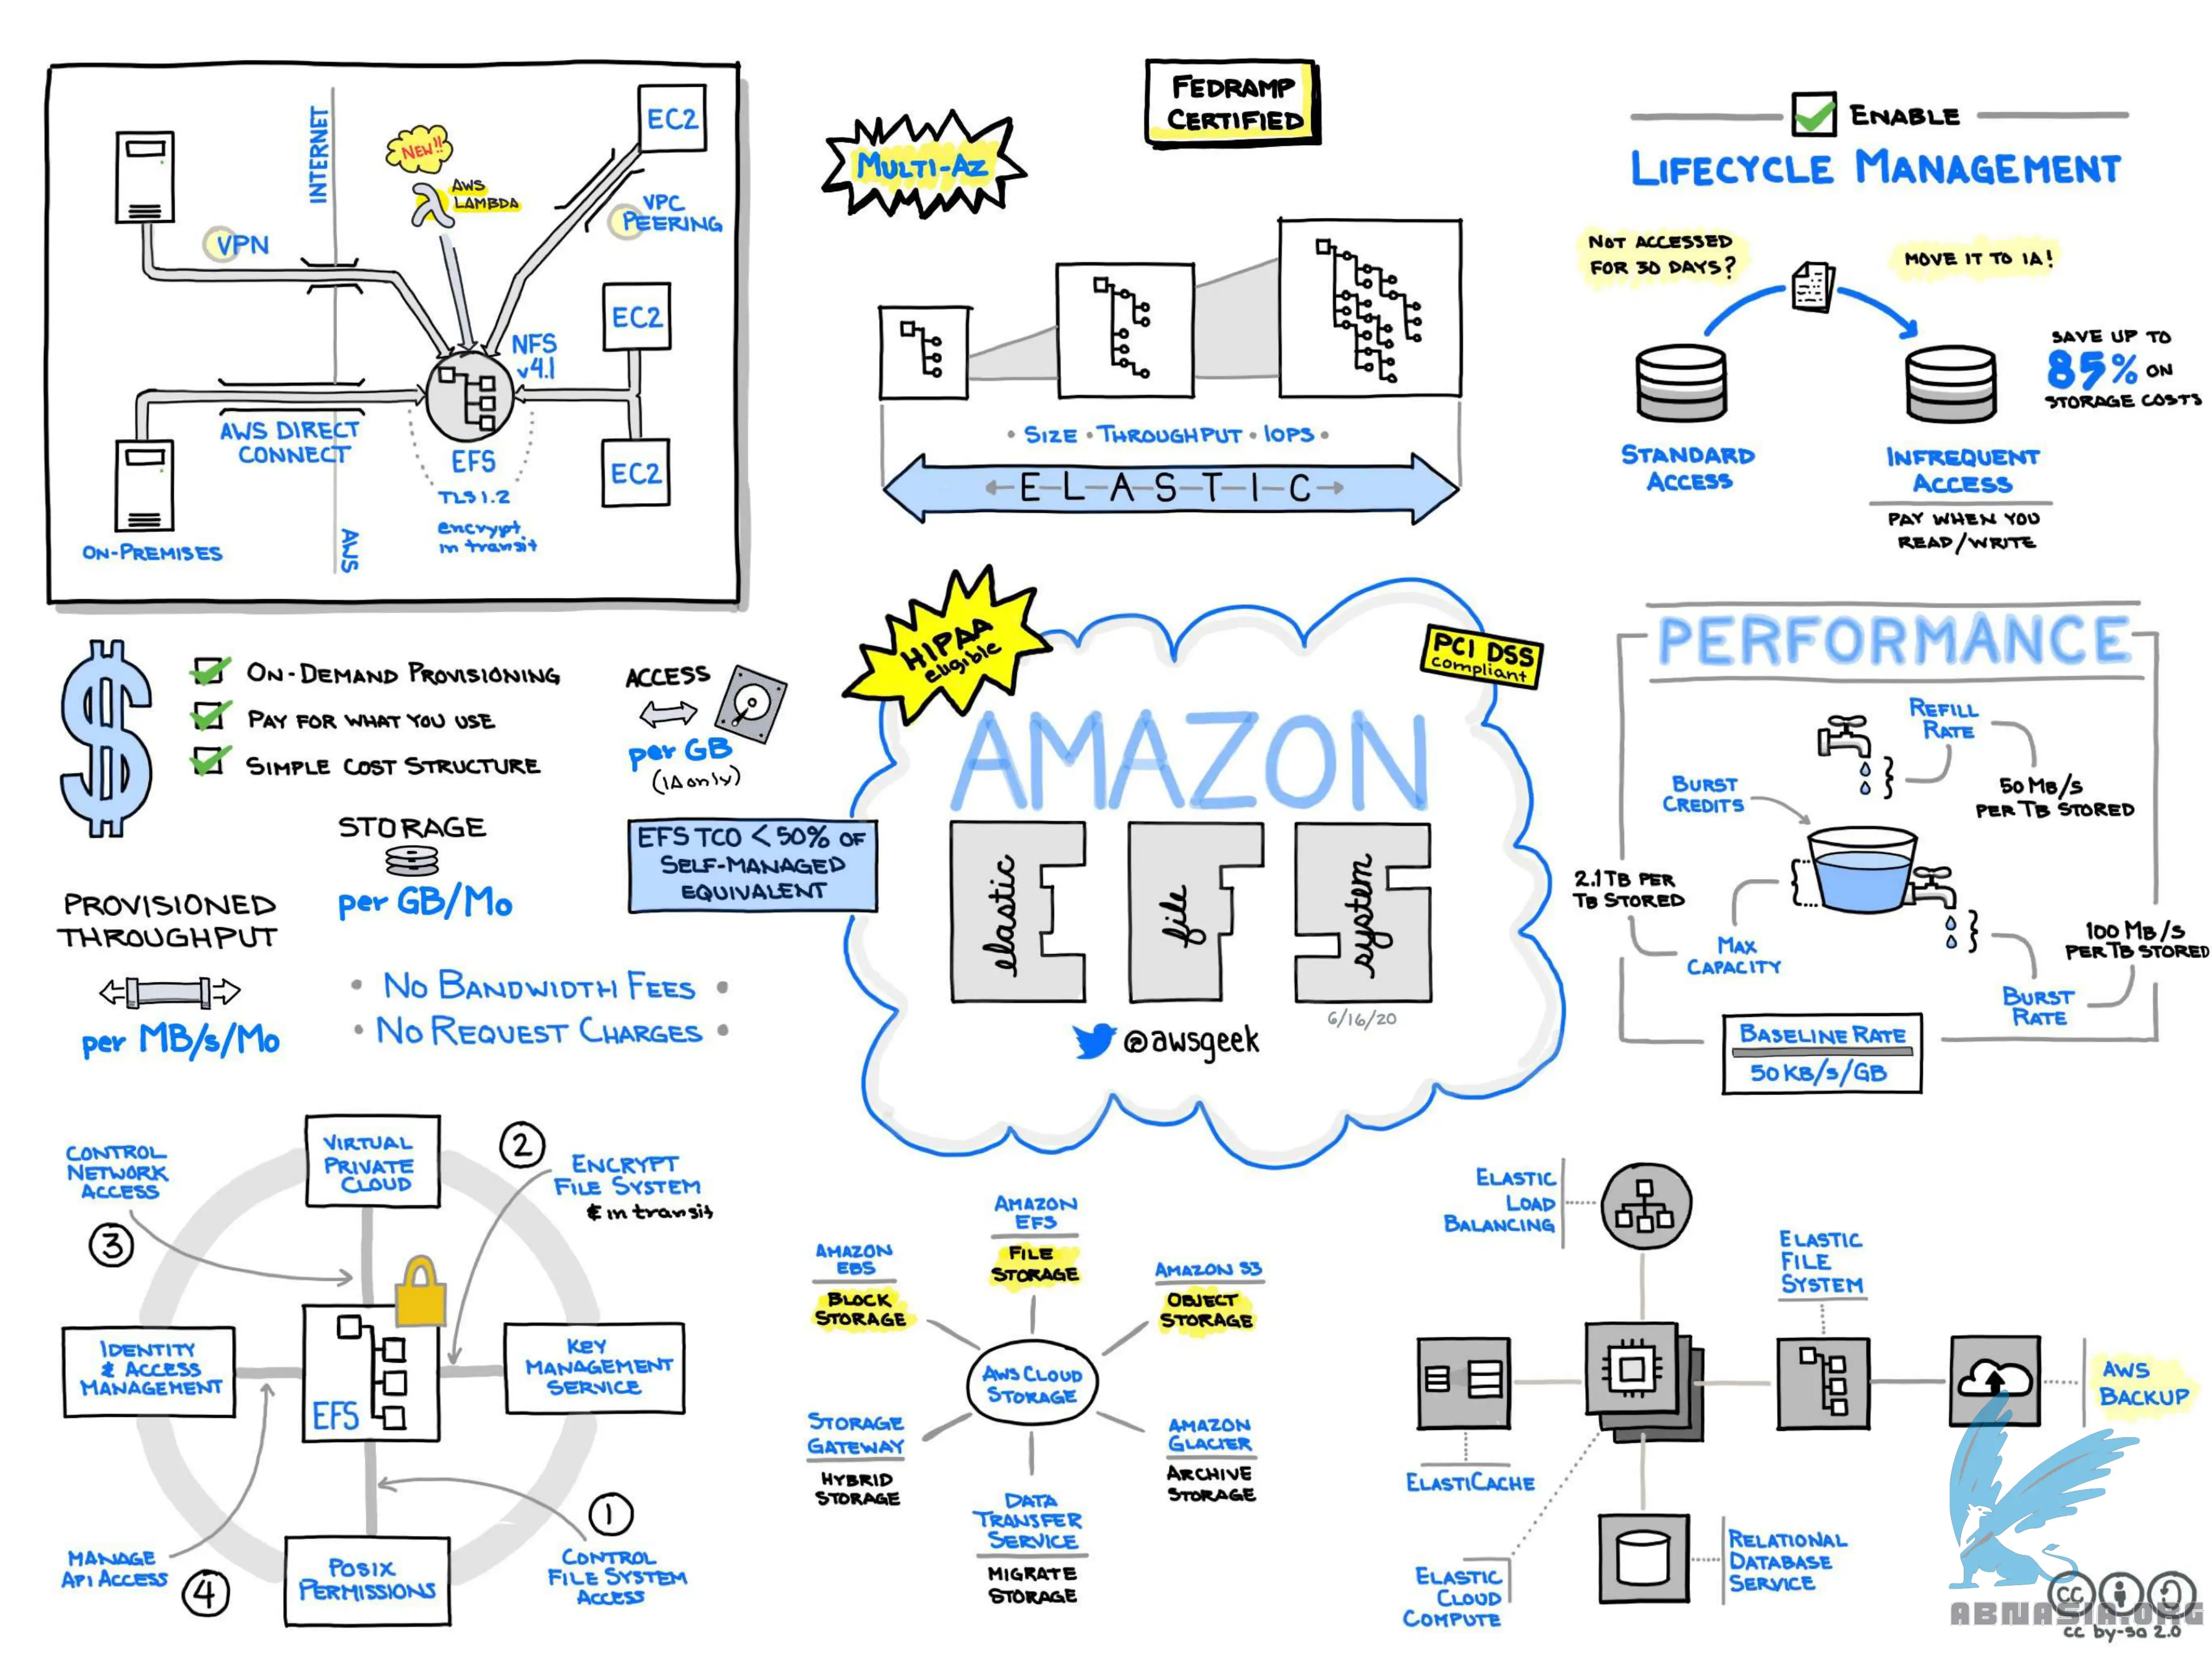 INTERNET
EC2
NEW!!
AWS
LAMBDA
VPC
PEERING
VPN
EC2
NFS
v4.1
AWS DIRECT
CONNECT
EFS
EC2
TLS 1.2
encrypt
in transit
ON-PREMISES
AWS
FEDRAMP
CERTIFIED
MULTI-AZ
• SIZE • THROUGHPUT • IOPS •
E-L-A-S-T-I-C
ENABLE
LIFECYCLE MANAGEMENT
NOT ACCESSED
FOR 30 DAYS?
MOVE IT TO IA!
SAVE UP TO
85% ON
STORAGE COSTS
STANDARD
ACCESS
INFREQUENT
ACCESS
PAY WHEN YOU
READ/WRITE
ON-DEMAND PROVISIONING
PAY FOR WHAT YOU USE
SIMPLE COST STRUCTURE
ACCESS
per GB
(IA only)
STORAGE
per GB/Mo
EFS TCO < 50% OF
SELF-MANAGED
EQUIVALENT
PROVISIONED
THROUGHPUT
per MB/s/Mo
• NO BANDWIDTH FEES •
• NO REQUEST CHARGES •
HIPAA
eligible
PCI DSS
compliant
AMAZON
elastic
file
system
6/16/20
@awsgeek
PERFORMANCE
REFILL
RATE
BURST
CREDITS
50 MB/S
PER TB STORED
2.1 TB PER
TB STORED
MAX
CAPACITY
100 MB/S
PER TB STORED
BURST
RATE
BASELINE RATE
50 KB/S/GB
CONTROL
NETWORK
ACCESS
3
VIRTUAL
PRIVATE
CLOUD
2
ENCRYPT
FILE SYSTEM
& in transit
IDENTITY
& ACCESS
MANAGEMENT
EFS
KEY
MANAGEMENT
SERVICE
MANAGE
API ACCESS
4
POSIX
PERMISSIONS
1
CONTROL
FILE SYSTEM
ACCESS
AMAZON
EFS
FILE
STORAGE
AMAZON
EBS
BLOCK
STORAGE
AMAZON S3
OBJECT
STORAGE
AWS CLOUD
STORAGE
STORAGE
GATEWAY
HYBRID
STORAGE
AMAZON
GLACIER
ARCHIVE
STORAGE
DATA
TRANSFER
SERVICE
MIGRATE
STORAGE
ELASTIC
LOAD
BALANCING
ELASTIC
FILE
SYSTEM
AWS
BACKUP
ELASTICACHE
ELASTIC
CLOUD
COMPUTE
RELATIONAL
DATABASE
SERVICE
cc
ABNASIA.ORG
cc by-sa 2.0